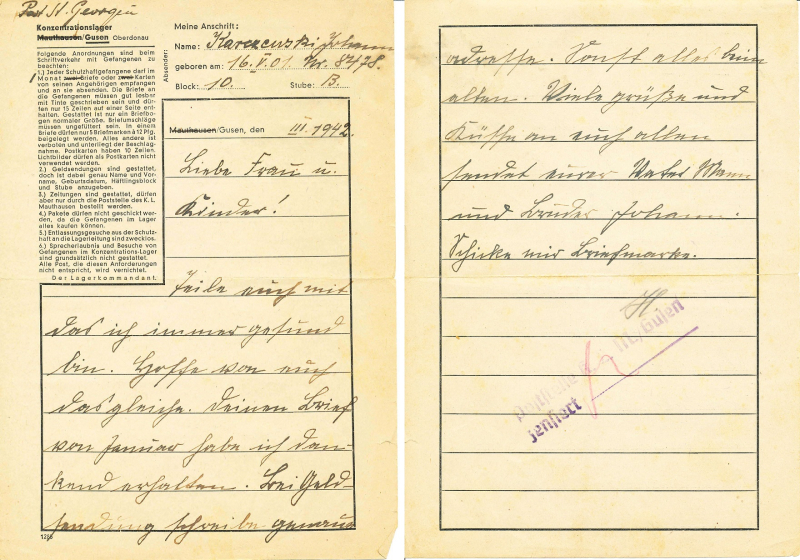 Post St. Georgen
Konzentrationslager
Mauthausen/Gusen Oberdonau
Folgende Anordnungen sind beim
Schriftverkehr mit Gefangenen zu
beachten:
1.) Jeder Schutzhaftgefangene darf im
1 Monat zwei Briefe oder zwei Karten
von seinen Angehörigen empfangen
und an sie absenden. Die Briefe an
die Gefangenen müssen gut lesbar
mit Tinte geschrieben sein und dür-
fen nur 15 Zeilen auf einer Seite ent-
halten. Gestattet ist nur ein Briefbo-
gen normaler Größe. Briefumschläge
müssen ungefüttert sein. In einem
Briefe dürfen nur 5 Briefmarken à 12 Pfg.
beigelegt werden. Alles andere ist
verboten und unterliegt der Beschlag-
nahme. Postkarten haben 10 Zeilen.
Lichtbilder dürfen als Postkarten nicht
verwendet werden.
2.) Geldsendungen sind gestattet,
doch ist dabei genau Name und Vor-
name, Geburtsdatum, Häftlingsblock
und Stube anzugeben.
3.) Zeitungen sind gestattet, dürfen
aber nur durch die Poststelle des K. L.
Mauthausen bestellt werden.
4.) Pakete dürfen nicht geschickt wer-
den, da die Gefangenen im Lager
alles kaufen können.
5.) Entlassungsgesuche aus der Schutz-
haft an die Lagerleitung sind zwecklos.
6.) Sprecherlaubnis und Besuche von
Gefangenen im Konzentrations-Lager
sind grundsätzlich nicht gestattet.
Alle Post, die diesen Anforderungen
nicht entspricht, wird vernichtet.
Der Lagerkommandant.
Absender:
Meine Anschrift:
Name: Karczewski Johann
geboren am: 16. V. 01. Nr. 8478.
Block: 10. Stube: B.
Mauthausen/Gusen, den III. 1942.
Liebe Frau u.
Kinder!
Teile euch mit
das ich immer gesund
bin. Hoffe von euch
dasgleiche. Deinen Brief
von Januar habe ich dan-
kend erhalten. Bei Geld-
sendung schreibe genaue
1286
adresse. Sonst alles beim
alten. Viele grüße und
Küsse an euch allen
sendet eurer Vater Mann
und Bruder Johann.
Schicke mir Briefmarke.
H.
Poststelle K.L./Gusen
zensiert